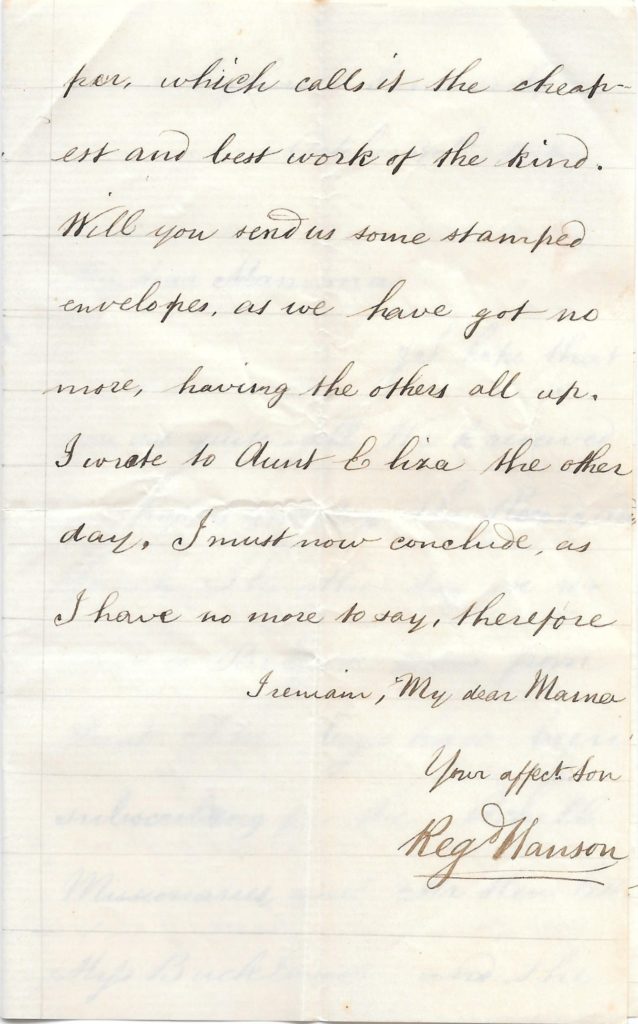 per, which calls it the cheap-
est and best work of the kind.
Will you send us some stamped
envelopes, as we have got no
more, having the others all up.
I wrote to Aunt Eliza the other
day. I must now conclude, as
I have no more to say, therefore
I remain, My dear Mama
Your affect. Son
Regd Hanson